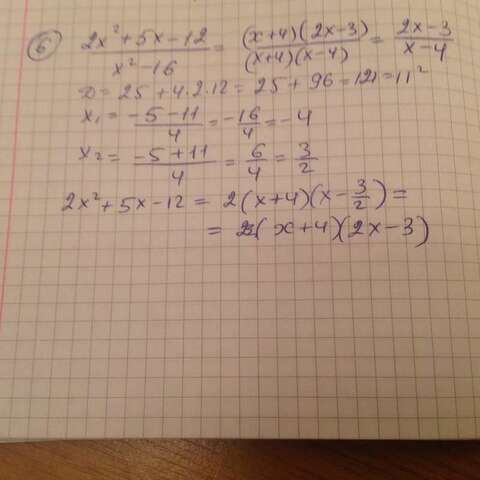 6) (2x²+5x-12)/(x²-16) = ((x+4)(2x-3))/((x+4)(x-4)) = (2x-3)/(x-4)
D = 25+4·2·12 = 25+96=121=11²
x₁ = (-5-11)/4 = -16/4 = -4
x₂ = (-5+11)/4 = 6/4 = 3/2
2x²+5x-12 = 2(x+4)(x-3/2) =
= (x+4)(2x-3)